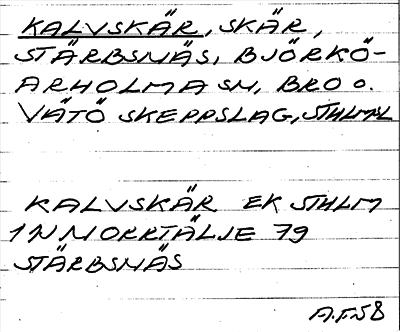 KALVSKÄR, SKÄR,
STÄRBSNÄS, BJÖRKÖ-
ARHOLMA SN, BRO O.
VÄTÖ SKEPPSLAG, STHLM L
KALVSKÄR EK STHLM
1N NORRTÄLJE 79
STÄRBSNÄS
A.F. 58